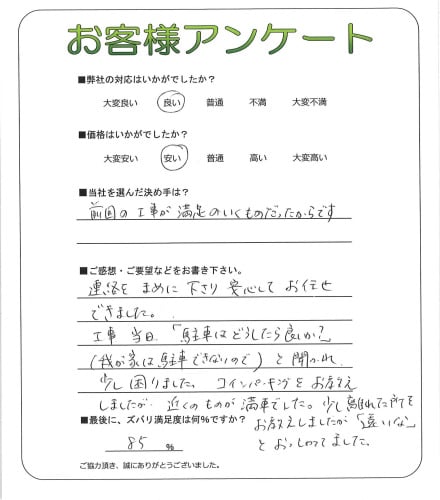 お客様アンケート
■弊社の対応はいかがでしたか?
大変良い 良い 普通 不満 大変不満
■価格はいかがでしたか?
大変安い 安い 普通 高い 大変高い
■当社を選んだ決め手は?
前回の工事が満足のいくものだったからです
■ご感想・ご要望などをお書き下さい。
連絡をまめに下さり安心してお任せ
できました。
工事当日、「駐車はどうしたら良いか?」
(我が家は駐車できないので)と聞かれ、
少し困りました。コインパーキングをお教え
しましたが近くのものが満車でした。少し離れた所を
お教えしましたが「遠いな」
とおっしゃってました。
■最後に、ズバリ満足度は何%ですか?
85 %
ご協力頂き、誠にありがとうございました。